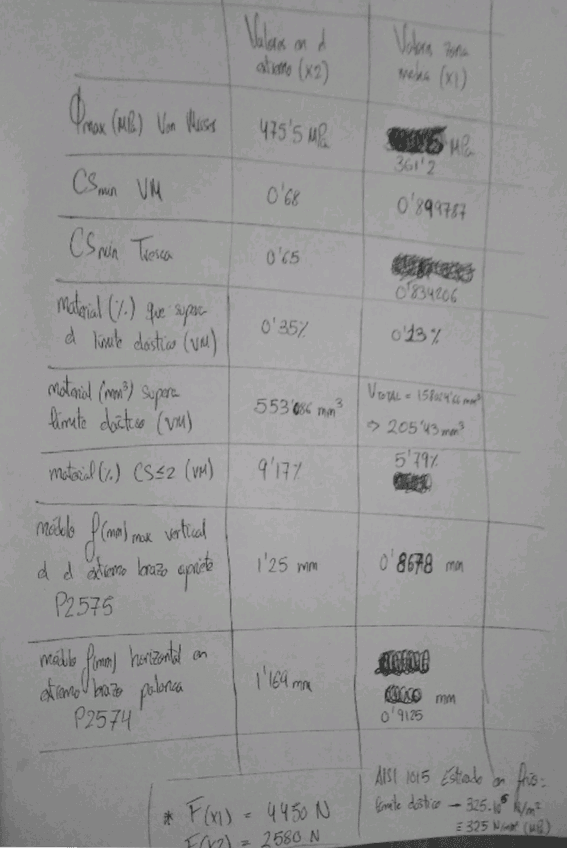 Valores en el
extremo (x2)
Valores zona
media (x1)
σmax (MPa) Von Mises
475'5 MPa
MPa
361'2
CSmin VM
0'68
0'899787
CSmin Tresca
0'65
0'834206
material (%) que supera
el límite elástico (VM)
0'35%
0'13%
material (mm³) supera
límite elástico (VM)
553'086 mm³
VTOTAL = mm³
⇒ 205'43 mm³
material (%) CS≤2 (VM)
9'17%
5'79%
módulo f(mm)max vertical
el extremo brazo apriete
P2575
1'25 mm
0'8678 mm
módulo f(mm) horizontal en
extremo brazo palanca
P2574
1'169 mm
mm
0'9125
* F(x1) = 4450 N
F(x2) = 2580 N
AISI 1015 Estirado en frío:
límite elástico → 325·10⁶ N/m²
≡ 325 N/mm² (MPa)